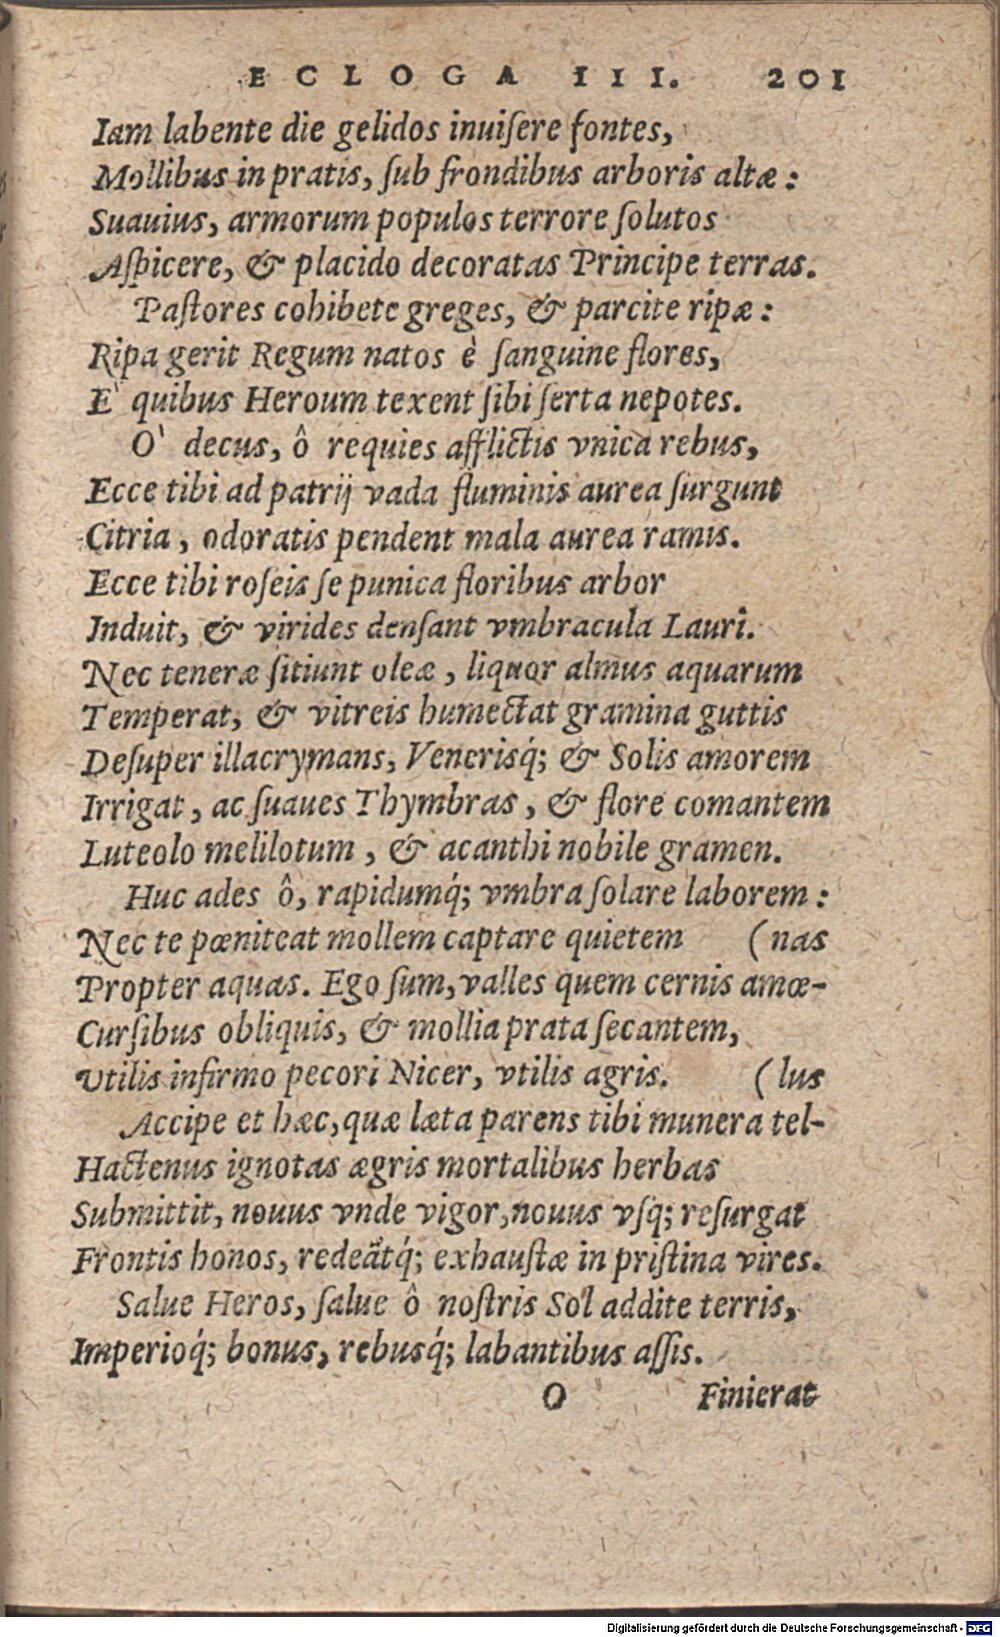 ECLOGA III. 201
Iam labente die gelidos inuiſere fontes,
Mollibus in pratis, ſub frondibus arboris altæ:
Suauius, armorum populos terrore ſolutos
Aſpicere, & placido decoratas Principe terras.
Paſtores cohibete greges, & parcite ripæ:
Ripa gerit Regum natos è ſanguine flores,
E' quibus Heroum texent ſibi ſerta nepotes.
O' decus, ô requies afflictis vnica rebus,
Ecce tibi ad patrij vada fluminis aurea ſurgunt
Citria, odoratis pendent mala aurea ramis.
Ecce tibi roſeis ſe punica floribus arbor
Induit, & virides denſant vmbracula Lauri.
Nec teneræ ſitiunt oleæ, liquor almus aquarum
Temperat, & vitreis humectat gramina guttis
Deſuper illacrymans, Veneriſq́; & Solis amorem
Irrigat, ac ſuaues Thymbras, & flore comantem
Luteolo melilotum, & acanthi nobile gramen.
Huc ades ô, rapidumq́; vmbra ſolare laborem:
Nec te pœniteat mollem captare quietem (nas
Propter aquas. Ego ſum, valles quem cernis amœ-
Curſibus obliquis, & mollia prata ſecantem,
Vtilis infirmo pecori Nicer, vtilis agris. (lus
Accipe et hæc, quæ læta parens tibi munera tel-
Hactenus ignotas ægris mortalibus herbas
Submittit, nouus vnde vigor, nouus vſq; reſurgat
Frontis honos, redeātq́; exhauſtæ in priſtina vires.
Salue Heros, ſalue ô noſtris Sol addite terris,
Imperioq́; bonus, rebusq́; labantibus aſſis.
O Finierat
Digitalisierung gefördert durch die Deutsche Forschungsgemeinschaft - DFG